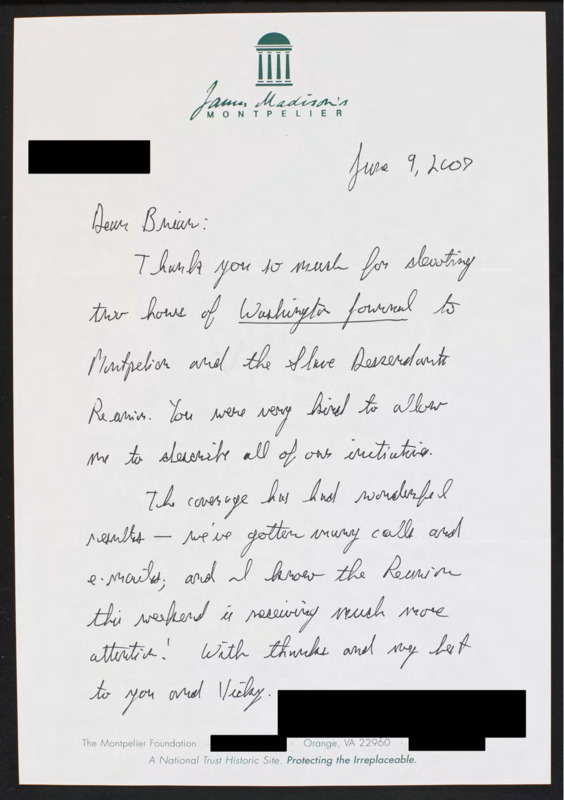 James Madison's
MONTPELIER
June 9, 2007
Dear Brian:
Thank you so much for devoting
two hours of Washington Journal to
Montpelier and the Slave Descendants
Reunion. You were very kind to allow
me to describe all of our initiatives.
The coverage has had wonderful
results — we've gotten many calls and
e-mails; and I know the Reunion
this weekend is receiving much more
attention! With thanks and my best
to you and Vicky.
The Montpelier Foundation Orange, VA 22960
A National Trust Historic Site. Protecting the Irreplaceable.